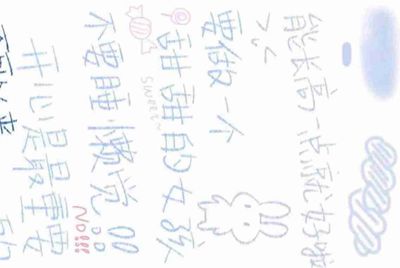 能长高一点就好啦
要做一个
甜甜的女孩
SWEET~
不要睡懒觉
NO!!!
开心是最重要的